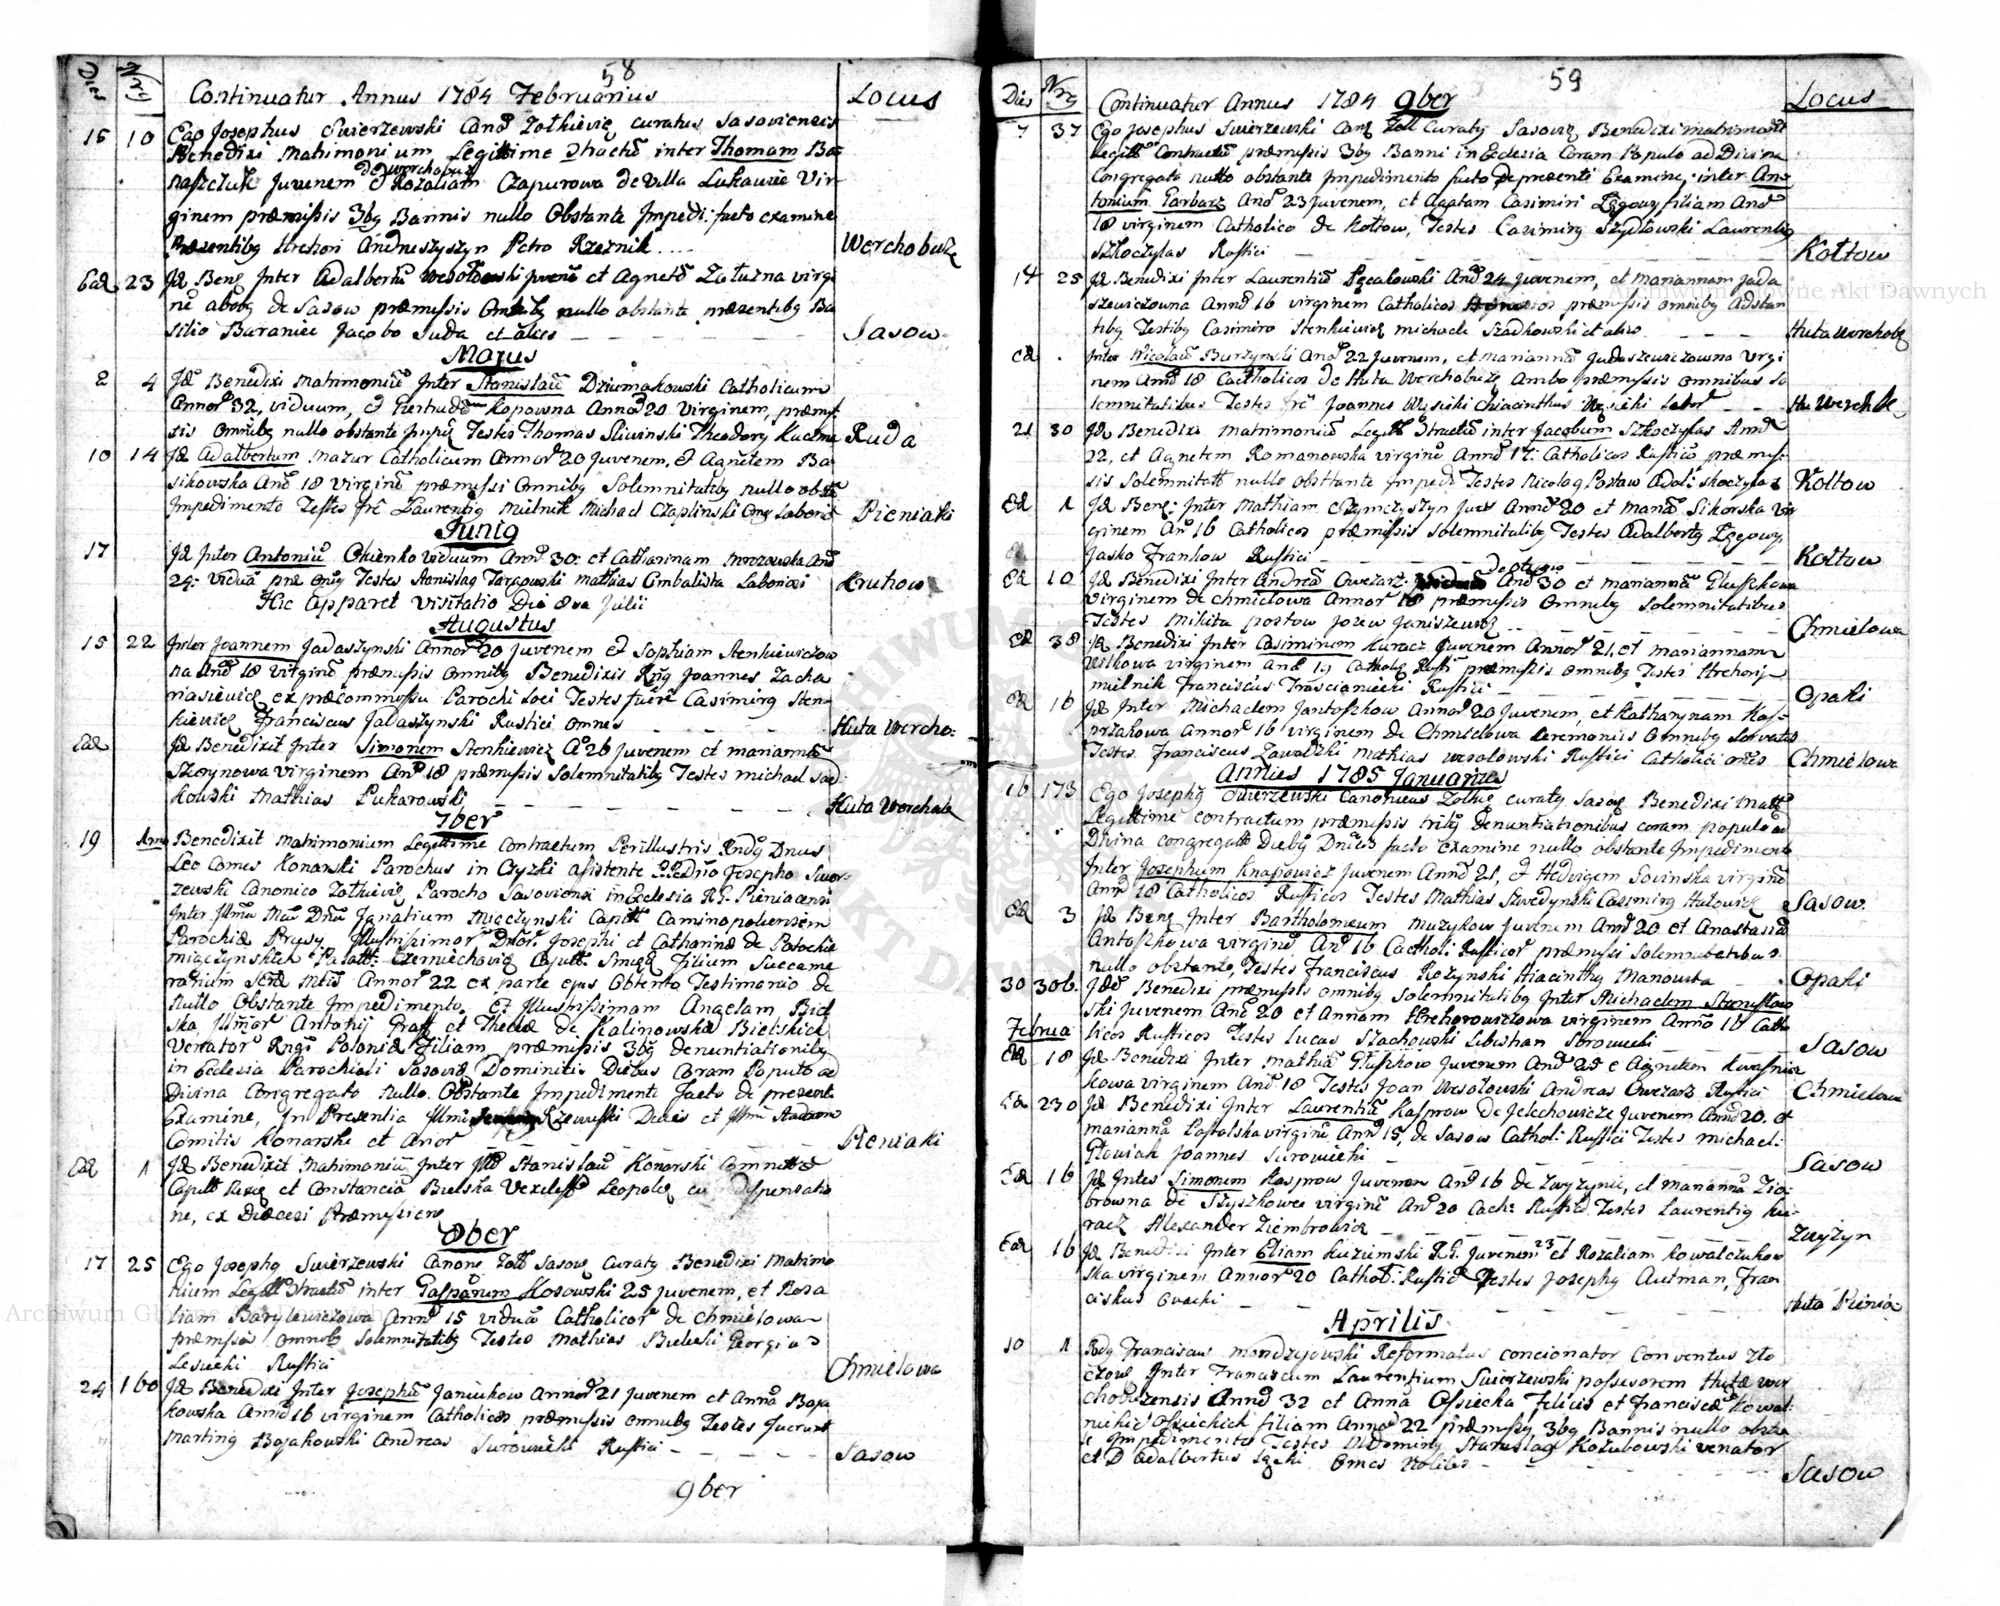 58
Dies Nrg Continuatur Annus 1784 Februarius Locus
15 10 Ego Josephus Swierzewski Cano Zolkievię, curatus Sasoviensis
Benedixi Matrimonium Legittime Ctractũ inter Thomam Ba
de Werchobuz
naszczuk Juvenem et Rozaliam Czapurowa de Villa Lukawie Vir
ginem præmissis 3bg Bannis nullo Obstante Impedi: facto examine
Præsentibg Hrehori Andruszyszyn Petro Rzeznik Werchobuz
Ead 23 Jd Beng Inter Adalbertũ Juvenẽ et Agnetẽ Zaluzna virgi
nẽ abobg de Sasow præmissis nullo obstante præsentibg Ba
silio Buraniec Jacobo Juda et aliis Sasow
Majus
2 4 Jd Benedixi Matrimoniũ Inter Stanislaũ Dziemakowski Catholicum
Annor 32, viduum, et Gertrudẽ Kopowna Annor 20 Virginem, præmis
sis omnibg nullo obstante Testes Thomas Sliwinski Theodorg Ruda
10 14 Jd Adalbertum Mazur Catholicum Annor 20 Juvenem, et Agnetem Ba
sikowska Anõ 18 Virginẽ præmissi Omnibg Solemnitatibg nullo obstã
Impedimento Testes Laurentig Mielnik Michael Czaplinski Pieniaki
Junig
17 Jd Inter Antoniũ Okienko Viduum Annõ 30: et Catharinam Mrozowska Anõ
24: Viduã Testes Stanislag Targowski Mathias Cimbalista Laboriosi Kruhow
Hic apparet Visitatio Die 8va Julii
Augustus
15 22 Inter Joannem Jadaszynski Annor 20 Juvenem et Sophiam Stenkiewiczow
na Annõ 18 Virginẽ præmissis Omnibg Benedixit Joannes Zacha
riasiewicz ex præcommissu Parochi Loci Testes fuere Casimirg Sten
kiewicz Franciscus Jadaszynski Rustici Omnes Huta Wercho:
Ead Jd Benedixit Inter Simonem Stenkiewicz Aõ 26 Juvenem et Mariannã
Virginem Anõ 18 præmissis Solemnitatibg Testes Michael
kowski Mathias Pukarowski Huta Werchob
7ber
19 Benedixit Matrimonium Legittime Contractum Perillustris Rndg Dnus
Leo Comes Konarski Parochus in Czyzki assistente Dnõ Josepho Swier
zewski Canonico Zolkievię Parocho Sasoviensi in Ecclesia R.G. Pieniacensi
Inter Ignatium Miączynski Capitt Caminopoliensem
Parochiæ Prusy, Illustrissimor Dnõr Josephi et Catharinæ de Potockie
Miączynskich Palatt: Czerniechovię Capitt. Filium Succame
rarium Annor 22 ex parte ejus Obtento Testimonio de
Nullo Obstante Impedimento, Et Illustrissimam Angelam Biel
ska Antonij et Theclæ de Kalinowskie Bielskich
Venator Regni Poloniæ Filiam, præmissis 3bg denuntiationibg
in Ecclesia Parochiali Sasovię Dominicis Diebus Coram Populo ad
Divina Congregato Nullo Obstante Impedimento Facto de præsenti
Examine, In Presentia Illmi Rzewuski Ducis et Illmi
Comitis Konarski et Anor Pieniaki
Ead 1 Jd Benedixit Matrimoniũ Inter Stanislaũ Konarski
Capitt et Constanciã Bielska Vexiliff Leopolię cũ dispensatio
ne, ex Diæcesi Præmissiens
8ber
17 25 Ego Josephg Swierzewski Canone Zoll Sasovię Curatg Benedixi Matrimo
nium Legitt Ctractũ inter Gasparum Kosowski 25 Juvenem, et Rosa
liam Barylewiczowa Annõ 15 viduã Catholicor de Chmielowa
præmissis omnibg Solemnitatibg Testes Mathias Bielecki Georgius
Lesiecki Rustici Chmielowa
24 160 Jd Benedixi Inter Josephũ Janiukow Annor 21 Juvenem et Annã Boja
kowska Annõ 16 virginem Catholicos præmissis omnibg Testes fuerunt
Marting Bojakowski Andreas Surowiecki Rustici Sasow
9ber
59
Dies Nrg Continuatur Annus 1784 9ber Locus
7 37 Ego Josephus Swierzewski Cang Zoll Curatg Sasovię Benedixi Matrimoniũ
Legitt Contractũ præmissis 3bg Banni in Ecclesia Coram Populo ad Divina
Congregato nullo obstante Impedimento facto de præsenti Examine, inter An
tonium Garbarz Anõ 23 Juvenem, et Agatam Casimiri Zęgowy filiam Anõ
18 virginem Catholico de Koltow, Testes Casimirg Szydlowski Laurentig
Szkoczylas Rustici Koltow
14 25 Jd Benedixi Inter Laurentiũ Pęcakowski Anõ 24 Juvenem, et Mariannam Jada
szewiczowna Annõ 16 virginem Catholicos præmissis omnibg Adstan
tibg Testibg Casimiro Stenkiewicz Michaele Szadkowski et alios Huta Werchob
Ead Inter Nicolaũ Burzynski Anõ 22 Juvenem, et Mariannã Judaszewiczowna Virgi
nem Annõ 18 Catholicos de Huta Werchobuzę Ambo præmissis omnibus So
lemnitatibus Testes Joannes Węsicki Chiacinthus Węsicki Labor Hu Werchob
21 30 Jd Benedixi Matrimoniũ Legitt Ctractũ inter Jacobum Szkoczylas Annõ
22, et Agnetem Romanowska virginẽ Annõ 17: Catholicos Rusticõ præmis
sis Solemnitatt nullo obstante Impedi Testes Nicolag Postaw Adali Skoczylas Koltow
Ead 1 Jd Beng: Inter Mathiam Szymczyszyn Juve Annõ 20 et Mariã Sikorska Vir
ginem Anõ 16 Catholicos præmissis Solemnitatibg Testes Adalbertg Zęgowy
Jasko Frankow Rustici Koltow
Ead 10 Jd Benedixi Inter Andreã Owczarz Anõ 30 et Mariannã Gluszkowa
Virginem de Chmielowa Annor 18 præmissis Omnibg Solemnitatibus
Testes Mikita Postow Jozew Janiszewski Chmielowa
Ead 38 Jd Benedixi Inter Casimirum Kuracz Juvenem Annor 21, et Mariannam
Wilkowa virginem Anõ 19 Catholg Rusti præmissis omnibg Testes Hrehorij
Mielnik Franciscus Trascianiecki Rustici Opaki
Ead 16 Jd Inter Michaelem Jantoszkow Annor 20 Juvenem, et Katharynam Kas
przakowa Annor 16 virginem de Chmielowa Ceremoniis Omnibg Servatis
Testes Franciscus Zawadzki Mathias Wesolowski Rustici Catholici oñes Chmielowa
Annus 1785 Januarius
16 173 Ego Josephg Swierzewski Canonicus Zolkię curatg Sasovię Benedixi Matt
Legittime contractum præmissis tribg Denuntiationibus coram populo ad
Divina congregatt Diebg Dñicis facto Examine nullo obstante Impedimento
Inter Josephum Knapowicz Juvenem Annõ 21, et Hedvigem Sovinska virginẽ
Annõ 18 Catholicos Rusticos Testes Mathias Szwedynski Casimirg Hulowicz Sasow
Ead 3 Jd Beng Inter Bartholomeum Muzykow Juvenem Annõ 20 et Anastasiã
Antoszkowa virginẽ Anõ 16 Cactholi Rusticor præmissi Solemnitatibus
nullo obstante, Testes Franciscus Rozynski Hiacinthg Manowita Opaki
30 306 Jdẽ Benedixi præmissis omnibg Solemnitatibg Inter Michaelem Stanislaw
ski Juvenem Anõ 20 et Annam Hrehorowiczowa virginem Annõ 16 Catho
licos Rusticos Testes Lucas Stachowski Sebestian Surowiecki Sasow
Februa
Ead 18 Jd Benedixi Inter Mathiã Gluszkow Juvenem Anõ 25 e Agnetem Kwasnicz
kowa virginem Anõ 18 Testes Joan Wesolowski Andreas Owczarz Rustici Chmielowa
Ead 230 Jd Benedixi Inter Laurentiũ Kasprow de Jelechowicze Juvenem Annõ 20, et
Mariannã Postolska virginẽ Annõ 15, de Sasow Catholi: Rustici Testes Michael:
Glowiak Joannes Surowiecki Sasow
Ead 16 Jd Inter Simonem Kasprow Juvenem Anõ 16 de Zwyzynie, et Mariannã Zio
browna de Szyszkowce virginẽ Anõ 20 Cach: Rustici Testes Laurentig Ku
racz Alexander Ziembrowicz Zwyzyn
Ead 16 Jd Benedixi Inter Eliam Kuziemski R.G. Juvenem 23 et Rozaliam Kowalczukow
ska virginem Annor 20 Cathol: Rustici Testes Josephg Autman, Fran
ciskus Gracki Huta Pienia
Aprilis
10 1 Rndg Franciscus Mondzejowski Reformatus concionator Conventus Zlo
czovię Inter Franciscum Laurentium Swierzewski possesorem Hutæ Wer
chobuzensis Annõ 32 et Annã Ossiecka Felicis et Franciscæ Kowal
nickie Ossieckich filiam Annor 22 præmissg 3bg Bannis nullo obsta
te Impedimento Testes Stanislag Kozubowski venator
et D Adalbertus Sęcki Omes Nobiles Sasow
Archiwum Główne Akt Dawnych
Archiwum Główne Akt Dawnych